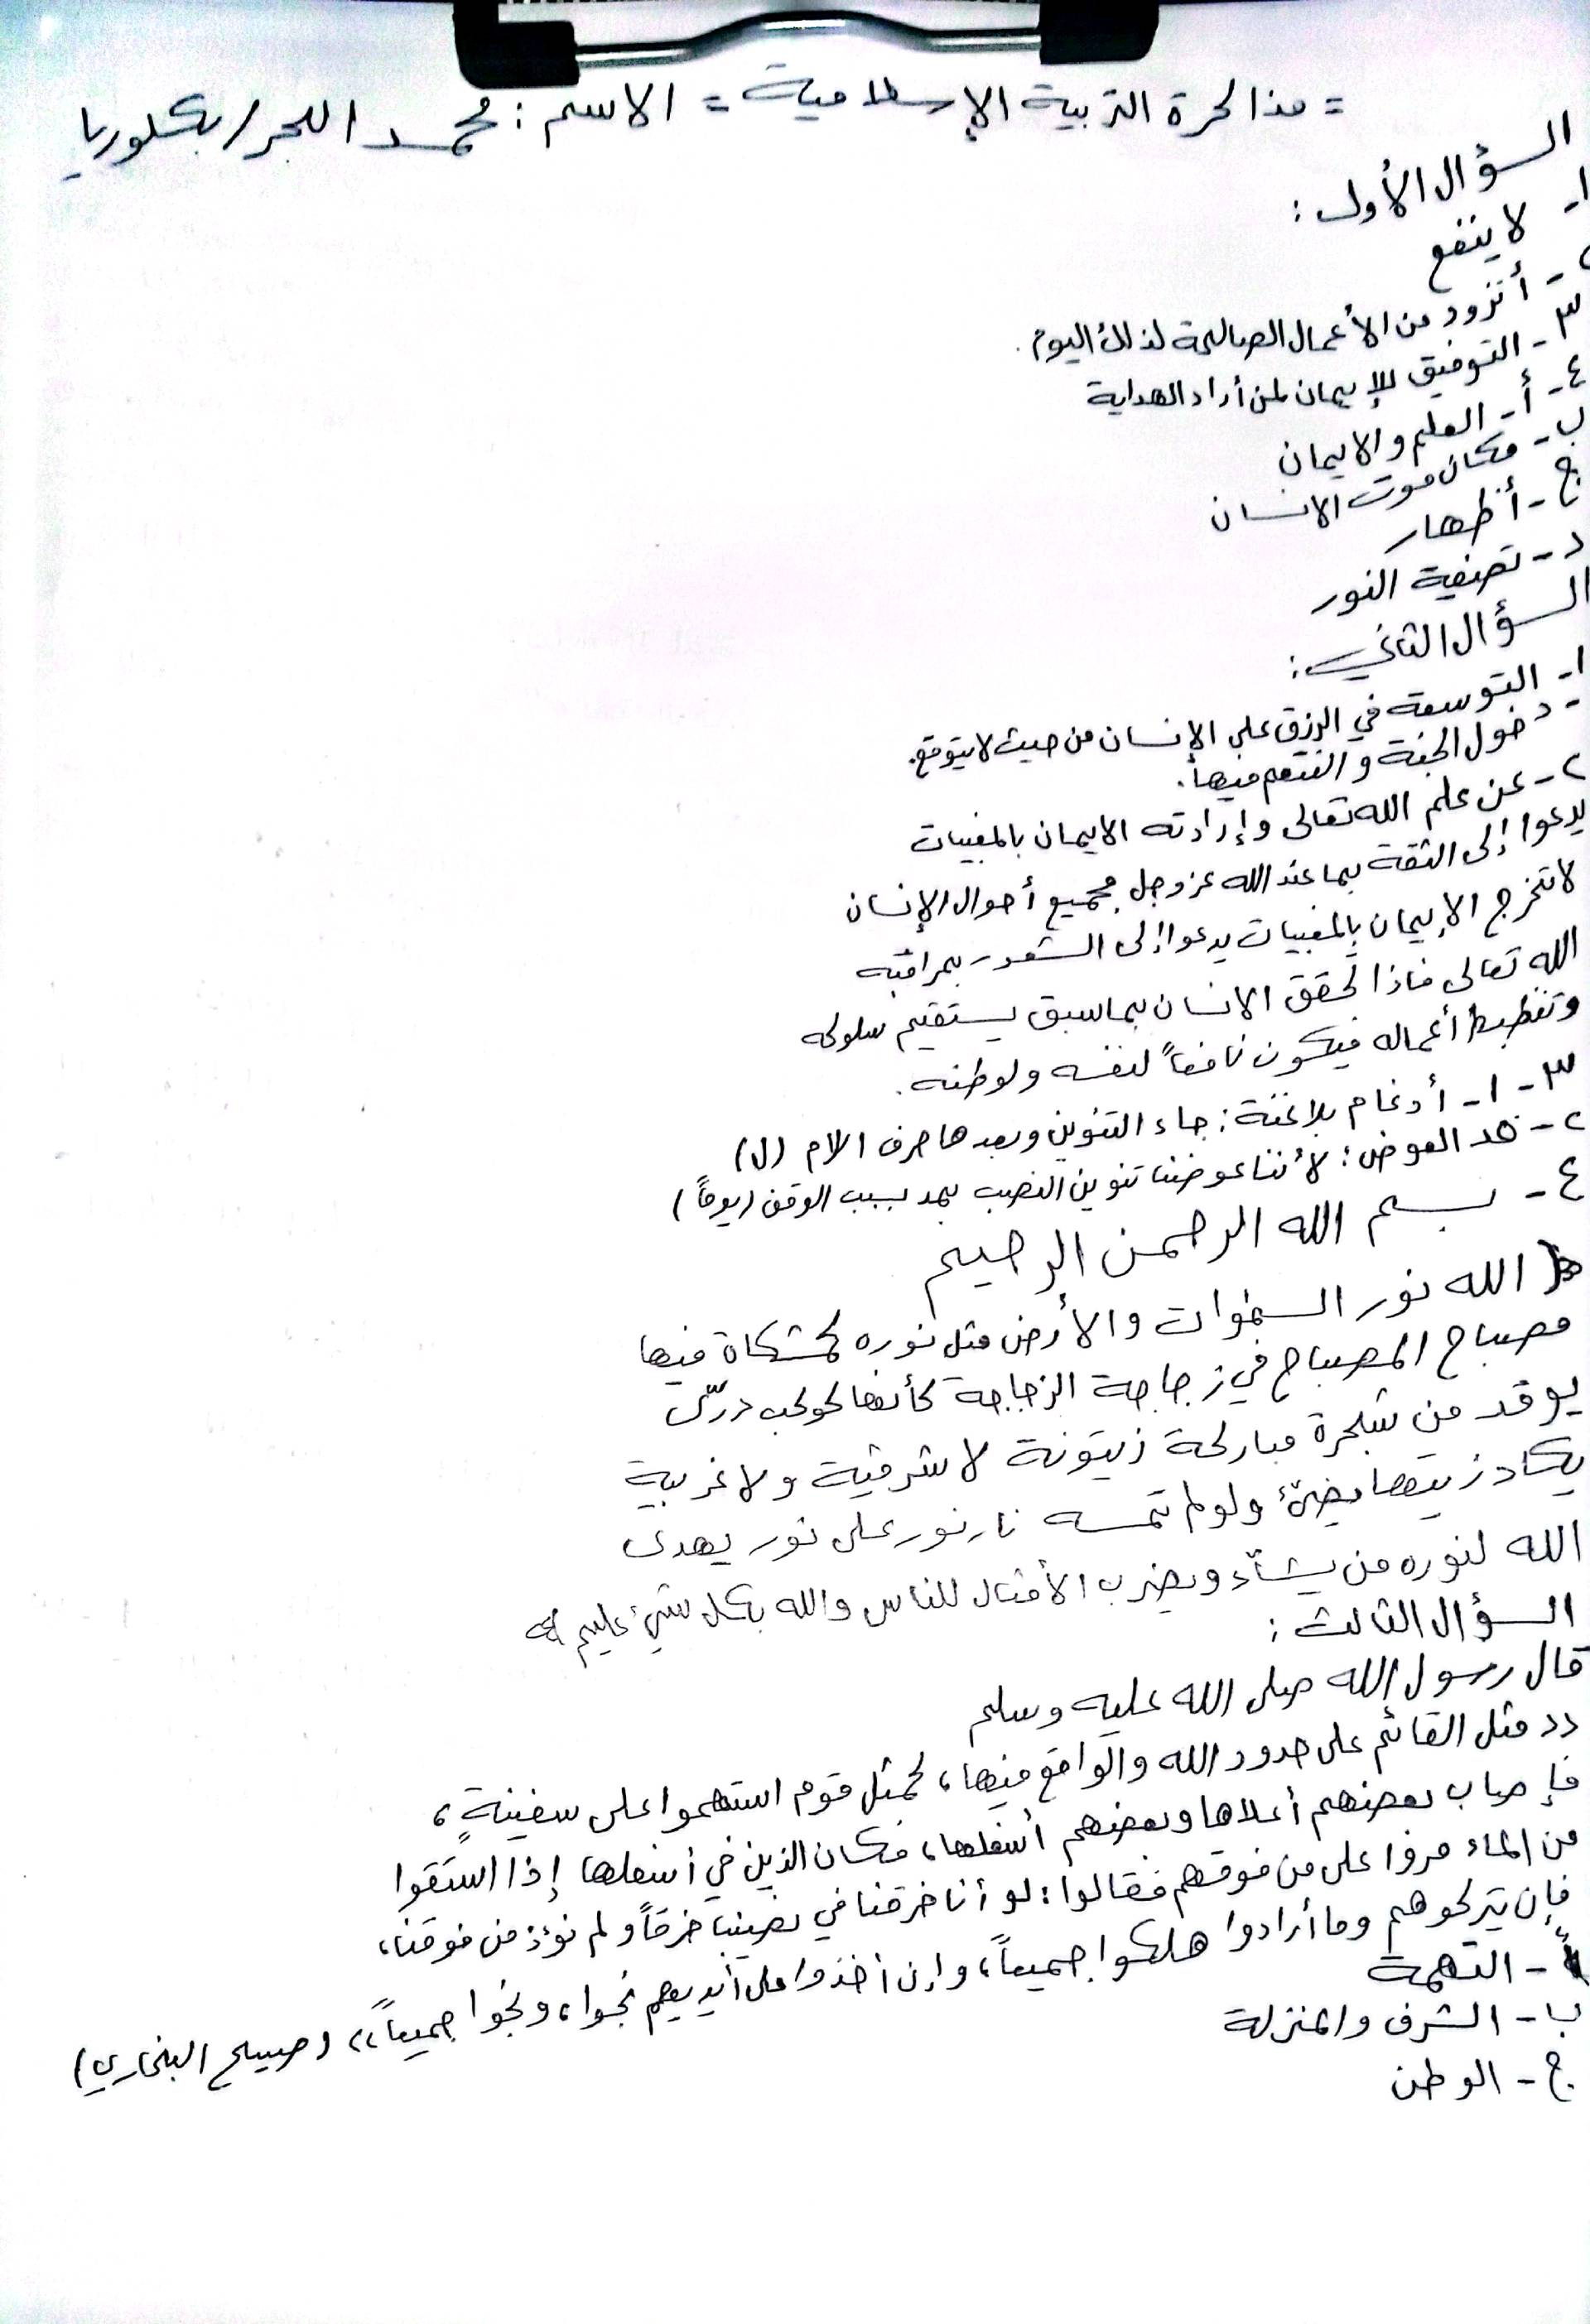 = مذاكرة التربية الإسلامية = الاسم : محمد اللجر / بكلوريا
السؤال الأول :
١- لا ينفع
٢- أتزود من الأعمال الصالحة لذلك اليوم .
٣- التوفيق للإيمان لمن أراد الهداية
٤- أ- العلم والايمان
ب- مكان موت الانسان
ج- أظهار
د- تصفية النور
السؤال الثاني :
١- التوسعة في الرزق على الإنسان من حيث لا يتوقع .
- دخول الجنة والتنعم فيها .
٢- عن علم الله تعالى وإرادته الايمان بالمغيبات
يدعوا إلى الثقة بما عند الله عز وجل جميع أحوال الإنسان
لا تخرج الإيمان بالمغيبات يدعوا إلى الشعور بمراقبه
الله تعالى فاذا تحقق الانسان بماسبق يستقيم سلوكه
وتنظبط أعماله فيكون نافعاً لنفسه ولوطنه .
٣- ١- أدغام بلا غنة : جاء التنوين وبعدها حرف الام (ل)
٢- مد العوض : لأننا عوضنا تنوين النصب بمد بسبب الوقف (يوماً)
٤- بسم الله الرحمن الرحيم
﴿ الله نور السموات والأرض مثل نوره كمشكاة فيها
مصباح المصباح في زجاجة الزجاجة كأنها كوكب درّى
يوقد من شجرة مباركة زيتونة لا شرقية ولا غربية
يكاد زيتها يضئ ولو لم تمسه نار نور على نور يهدى
الله لنوره من يشآء ويضرب الأمثال للناس والله بكل شيء عليم ﴾
السؤال الثالث :
قال رسول الله صلى الله عليه وسلم
(( مثل القائم على حدود الله والواقع فيها ، كمثل قوم استهموا على سفينةٍ ،
فإصاب بعضهم أعلاها وبعضهم أسفلها ، فكان الذين في أسفلها إذا استقوا
من الماء مروا على من فوقهم فقالوا : لو أنا خرقنا في نصيبنا خرقاً ولم نؤذ من فوقنا ،
فإن يتركوهم وما أرادوا هلكوا جميعاً ، وإن أخذوا على أيديهم نجوا ، ونجوا جميعاً )) (صحيح البخاري)
أ- التهمة
ب- الشرف والمنزلة
ج- الوطن